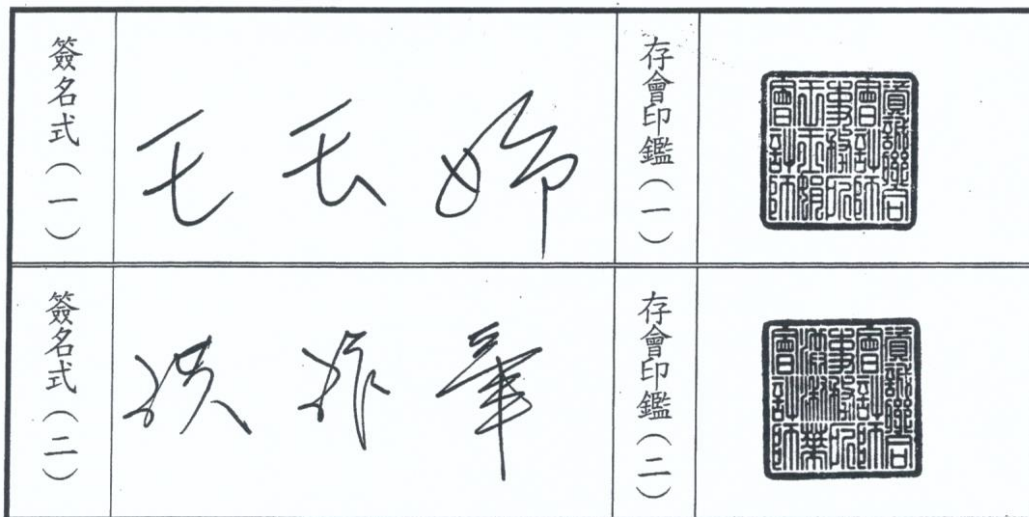 簽名式(一)
王玉娟
存會印鑑(一)
資誠聯合
會計師
事務所
王玉娟
會計師
簽名式(二)
存會印鑑(二)
資誠聯合
會計師
事務所
會計師